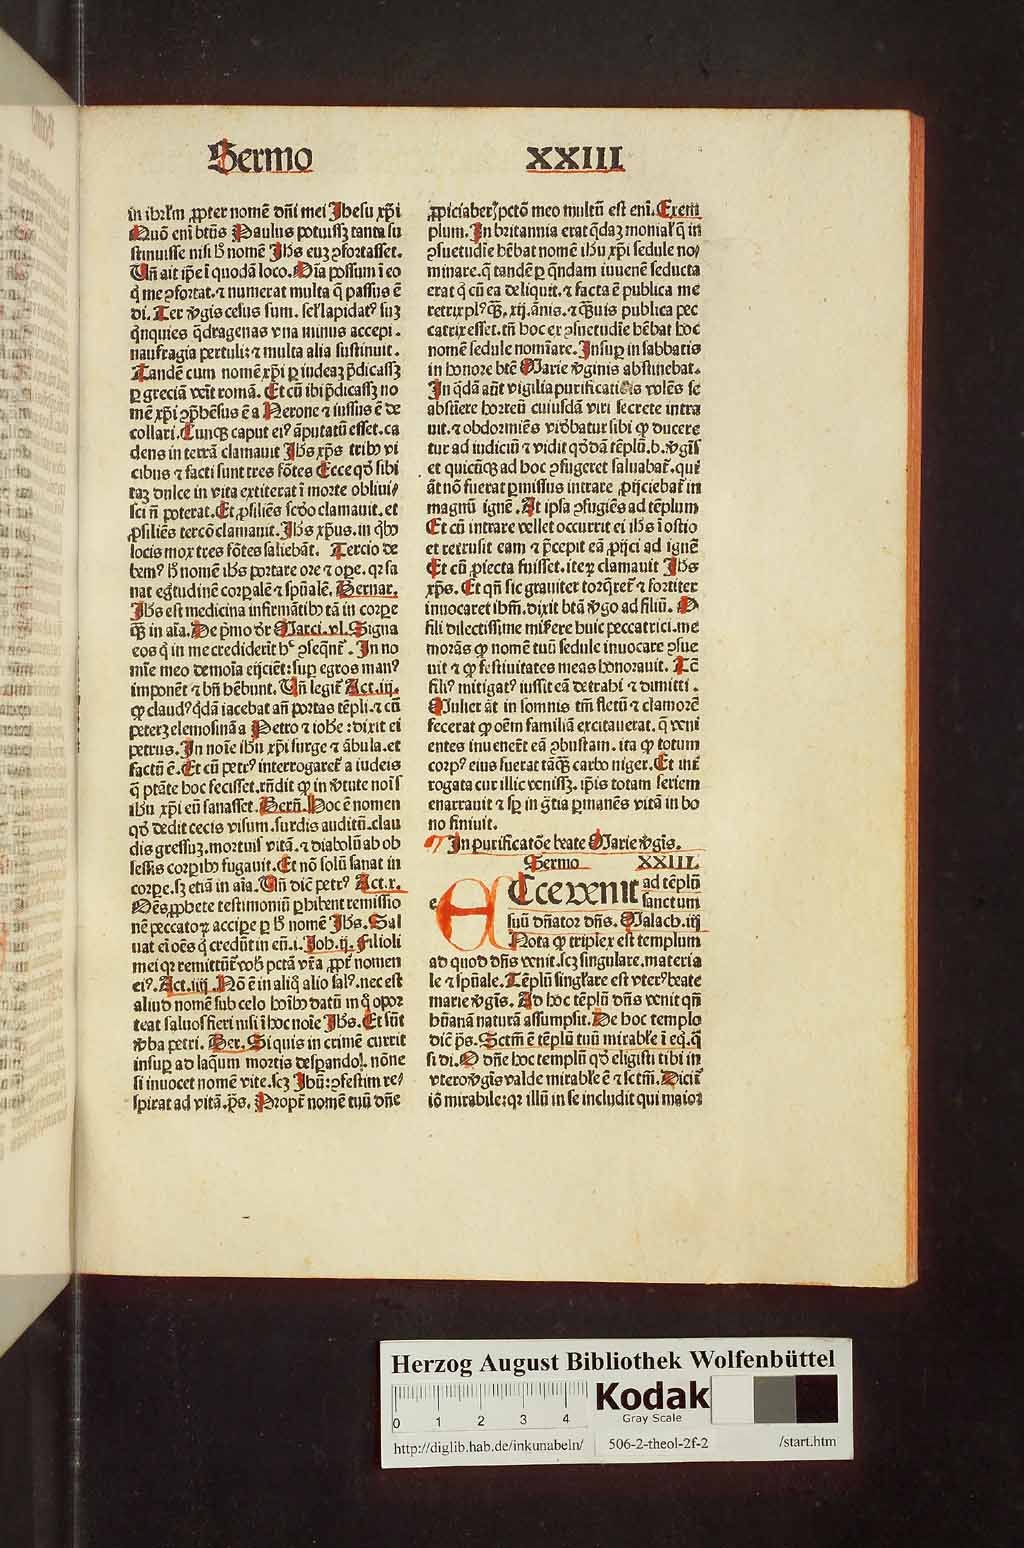 Sermo XXIII
in ihrl'm ꝓpter nomē dn̄i mei Jhesu xp̄i
Quō eni btūs Paulus potuissꝫ tanta su
stinuisse nisi h̄ nomē Jh̄s euꝫ ꝯfortasset.
Un̄ ait ip̄e ī quodā loco. Oīa possum ī eo
q̇ me ꝯfortat. ⁊ numerat multa q̄ passus ē
di. Ter v̄gis cesus sum. sel' lapidatꝰ suꝫ
q̄nquies q̄dragenas vna minus accepi.
naufragia pertuli: ⁊ multa alia sustinuit.
Tandē cum nomē xp̄i ꝑ iudeaꝫ p̄dicassꝫ
ꝑ greciā veīt romā. Et cū ibi p̄dicassꝫ no
mē xp̄i ꝯp̄hēsus ē a Nerone ⁊ iussus ē de
collari. Cunqꝫ caput eiꝰ āputatū esset. ca
dens in terrā clamauit Jh̄s xp̄s tribꝰ vi
cibus ⁊ facti sunt tres fōtes Ecce qd̄ sibi
taꝫ dulce in vita extiterat ī morte obliui/
sci n̄ poterat. Et ꝓsiliēs scd̄o clamauit. et
ꝓsiliēs tercō clamauit. Jh̄s xp̄us. in qͥbꝰ
locis mox tres fōtes saliebāt. Tercio de
bemꝰ h̄ nomē ih̄s portare ore ⁊ oꝑe. qꝛ sa
nat eḡtudinē corꝑalē ⁊ sp̄ualē. Bernar.
Jh̄s est medicina infirmātibꝰ tā in corꝑe
qͣꝫ in aīa. De p̄mo dr̄ Marci. vl. Signa
eos q̇ in me crediderīt hͨ ꝯseqn̄t̄. In no
mīe meo demoīa eijciēt: suꝑ egros manꝰ
imponēt ⁊ bn̄ hēbunt. Un̄ legit̄ Act. iij.
ꝙ claudꝰ q̄dā iacebat an̄ portas tēpli. ⁊ cū
peterꝫ elemosinā a Petro ⁊ ioh̄e: dixit ei
petrus. In noīe ih̄u xp̄i surge ⁊ ābula. et
factū ē. Et cū petrꝰ interrogaret̄ a iudeis
q̄ ptāte hoc fecisset. rn̄dit ꝙ in v̄tute noīs
ih̄u xp̄i eū sanasset. Bern̄. Hoc ē nomen
qd̄ dedit cecis visum. surdis auditū. clau
dis gressuꝫ. mortuis vitā. ⁊ diabolū ab ob
sessis corꝑibꝰ fugauit. Et nō solū sanat in
corꝑe. sꝫ etiā in aīa. Un̄ dic̄ petrꝰ Act. x.
Oēs ꝓphete testimoniū ꝑhibent remissio
nē peccatoꝝ accipe ꝑ h̄ nomē Jh̄s. Sal
uat ei oēs q̇ credn̄t in eū. i. Joh. ij. Filioli
mei qꝛ remittunt̄ vobꝭ pctā vr̄a ꝓpt̄ nomen
eiꝰ. Act. iiij. Nō ē in aliq̇ alio salꝰ. nec est
aliud nomē sub celo hoībꝰ datū in q̇ opor
teat saluos fieri nisi ī hoc noīe Jh̄s. Et sūt
v̄ba petri. Ber. Si quis in crimē currit
insuꝑ ad laqm̄ mortis desꝑando. nōne
si inuocet nomē vite. scꝫ Jhū: ꝯfestim re/
spirat ad vitā. p̄s. Propt̄ nomē tuū dn̄e
ꝓpiciaberꝭ petō meo multū est enī. Exem
plum. In britannia erat q̄daꝫ monial' q̄ in
ꝯsuetudīe hēbat nomē ih̄u xp̄i sedule no/
minare. q̄ tandē ꝑ q̄ndam iuuenē seducta
erat q̇ cū ea deliquit. ⁊ facta ē publica me
retrix plꝰ qͣꝫ. xij. ānis. ⁊ qͣꝫuis publica pec
catrix esset. tn̄ hoc ex ꝯsuetudīe hēbat hoc
nomē sedule nomīare. Insuꝑ in sabbatis
in honore btē Marie v̄ginis abstinebat.
In q̄dā aūt vigilia purificatiōis volēs se
abstīere horreū cuiusdā viri secrete intra
uit. ⁊ obdormiēs videbatur sibi ꝙ ducere
tur ad iudiciū ⁊ vidit qd̄dā tēplū. b. v̄gīs
et quicūqꝫ ad hoc ꝯfugeret saluabat̄. qui
āt nō fuerat ꝑmissus intrare ꝓijciebat̄ in
magnū ignē. At ipsa ꝯfugiēs ad tēplum
Et cū intrare vellet occurrit ei ih̄s ī ostio
et retrusit eam ⁊ p̄cepit eā ꝓijci ad ignē
Et cū ꝓiecta fuisset. iteꝝ clamauit Jh̄s
xp̄s. Et qn̄ sic grauiter torq̄ret̄ ⁊ fortiter
inuocaret ih̄m. dixit btā v̄go ad filiū. O
fili dilectissime mis̄ere huic peccatrici. me
morās ꝙ nomē tuū sedule inuocare ꝯsue
uit ⁊ ꝙ festiuitates meas honorauit. Tc̄
filiꝰ mitigatꝰ iussit eā detrahi ⁊ dimitti.
Mulier āt in somnis tm̄ fletū ⁊ clamorē
fecerat ꝙ oēm familiā excitauerat. q̄ veni
entes inuenert̄ eā ꝯbustam. ita ꝙ totum
corpꝰ eius fuerat tāqͣꝫ carbo niger. Et int̄
rogata cur illic venissꝫ. ip̄is totam seriem
enarrauit ⁊ sꝑ in gr̄tia ꝑmanēs vitā in bo
no finiuit.
¶ In purificatōe beate Marie v̄gīs.
Sermo XXIII.
ECce venit ad tēplū
sanctum
suū dn̄ator dn̄s. Malach. iij
Nota ꝙ triplex est templum
ad quod dn̄s venit. scꝫ singulare. materia
le ⁊ sp̄uale. Tēplū singl'are est vterꝰ beate
marie v̄gīs. Ad hoc tēplū dn̄s venit qn̄
hūanā naturā assumpsit. De hoc templo
dic̄ p̄s. Sctm̄ ē tēplū tuū mirabl'e ī eq̄. q̄
si di. O dn̄e hoc templū qd̄ eligisti tibi in
vtero v̄gīs valde mirabl'e ē ⁊ sctm̄. Dicit̄
iō mirabile: qꝛ illū in se includit qui maior
Herzog August Bibliothek Wolfenbüttel
0 1 2 3 4
Kodak
Gray Scale
http://diglib.hab.de/inkunabeln/ 506-2-theol-2f-2 /start.htm